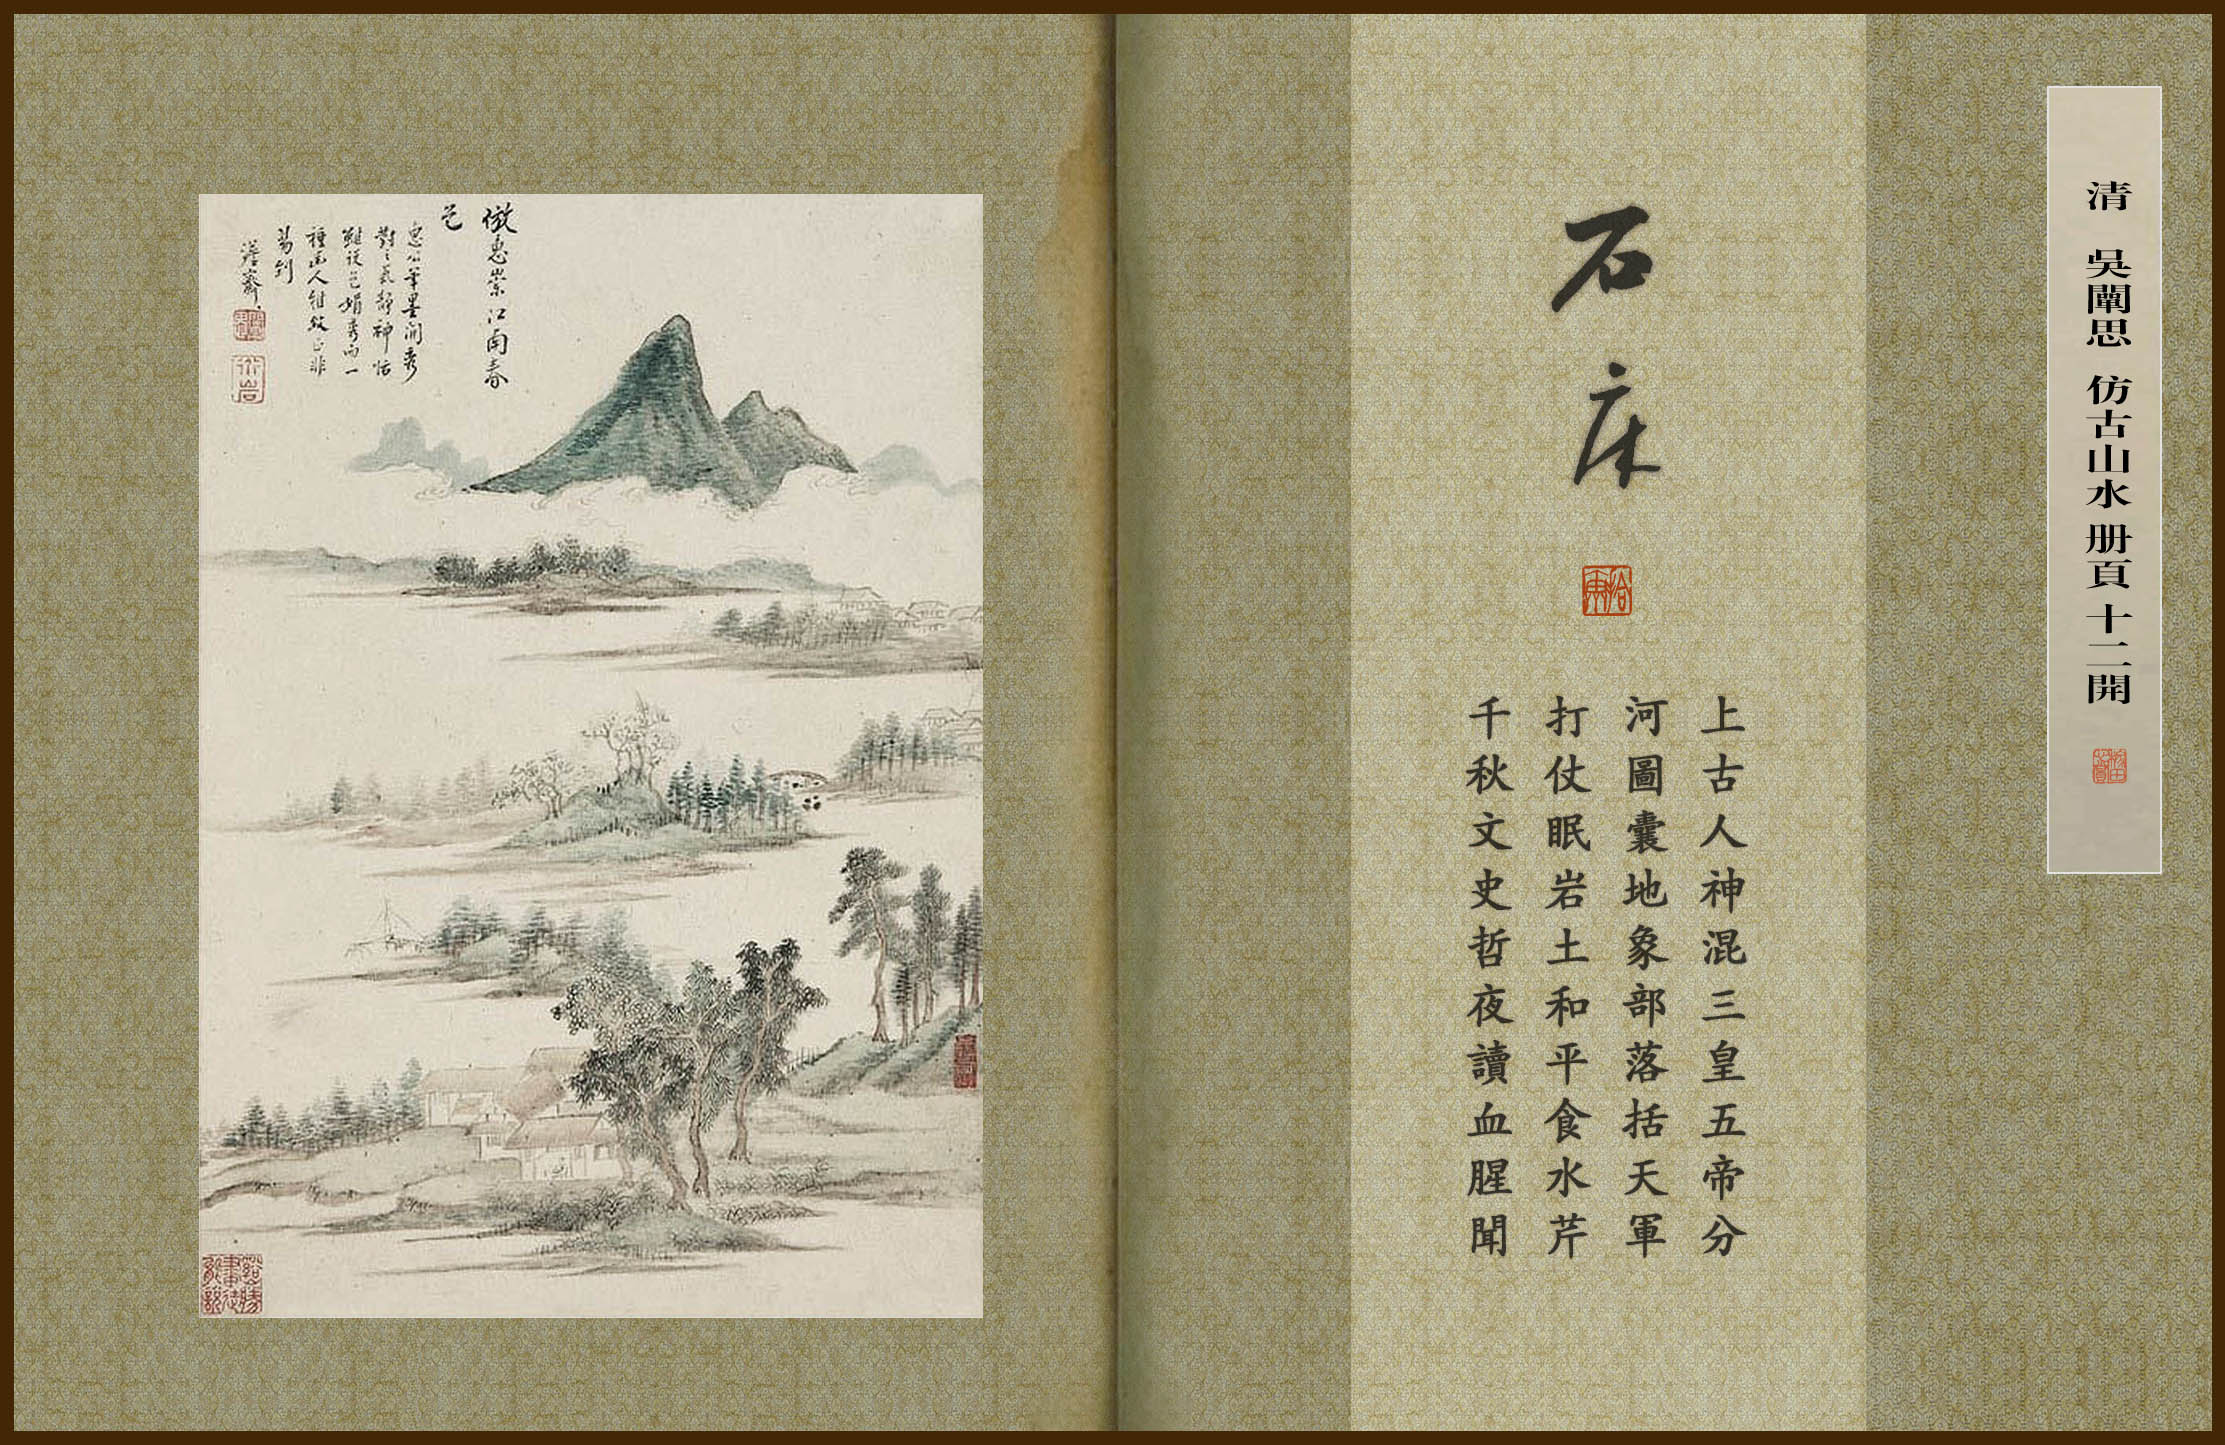 清 吳闡思 仿古山水 册頁 十二開
石床
上古人神混三皇五帝分
河圖囊地象部落括天軍
打仗眠岩土和平食水芹
千秋文史哲夜讀血腥聞
倣惠崇江南春
惠公筆墨閒秀
對之氣静神恬
雖設色娟秀而一
種幽人雅致正非
易到